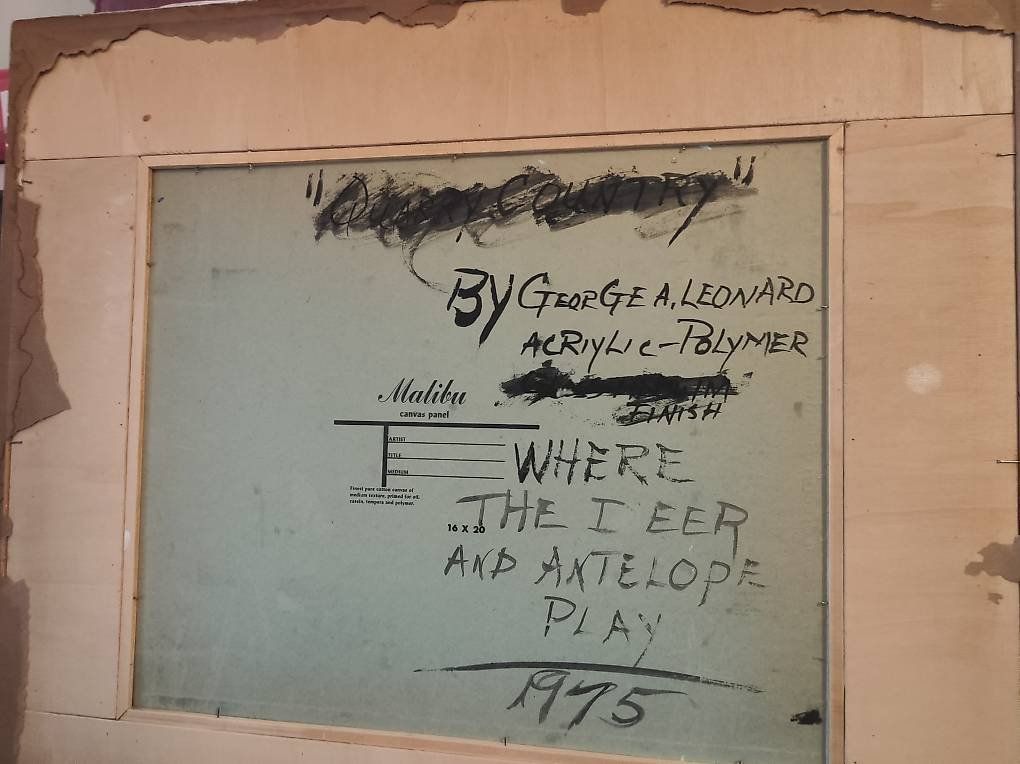 "Quarry Country"
BY GEORGE A. LEONARD
ACRIYLIC-POLYMER
FINISH
Malibu
canvas panel
ARTIST
TITLE
MEDIUM
Finest pure cotton canvas of
medium texture, primed for oil,
casein, tempera and polymer.
16 X 20
WHERE
THE I EER
AND ANTELOPE
PLAY
1975